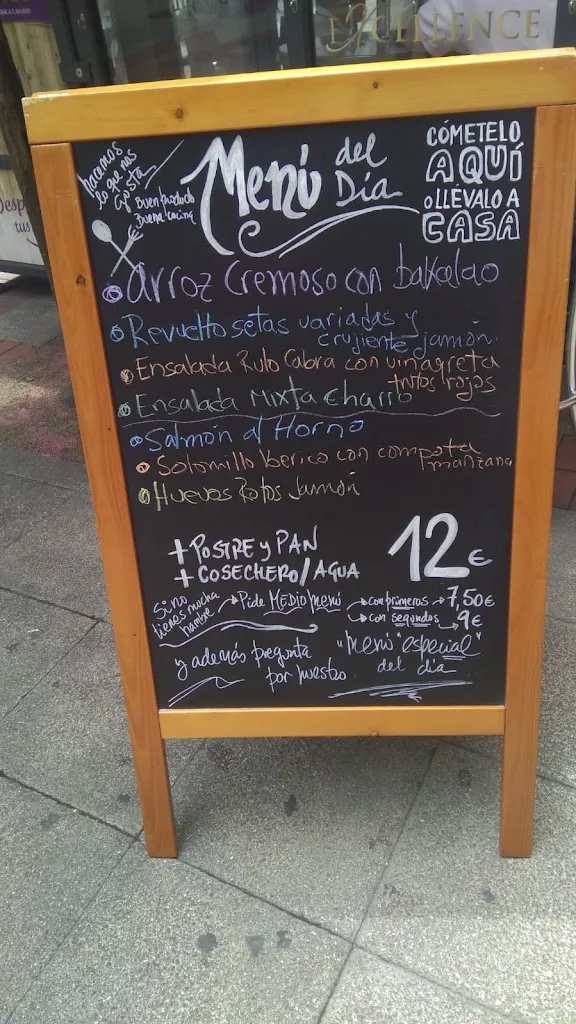 EXCELLENCE
hacemos
lo que nos
gusta
Buen producto
Buena cocina
Menú del
Día
CÓMETELO
AQUÍ
O LLÉVALO A
CASA
Arroz Cremoso con bakalao
Revuelto setas variadas y
crujiente jamón.
Ensalada Rulo Cabra con vinagreta
frutos rojos
Ensalada Mixta Charro
Salmón al Horno
Solomillo Iberico con compota
manzana
Huevos Rotos Jamón
+ POSTRE y PAN
+ COSECHERO/AGUA
12€
Si no
tienes mucha
hambre
Pide MEDIO menú
con primeros → 7,50€
con segundos → 9€
y además pregunta
por nuestro
"menú "especial"
del día